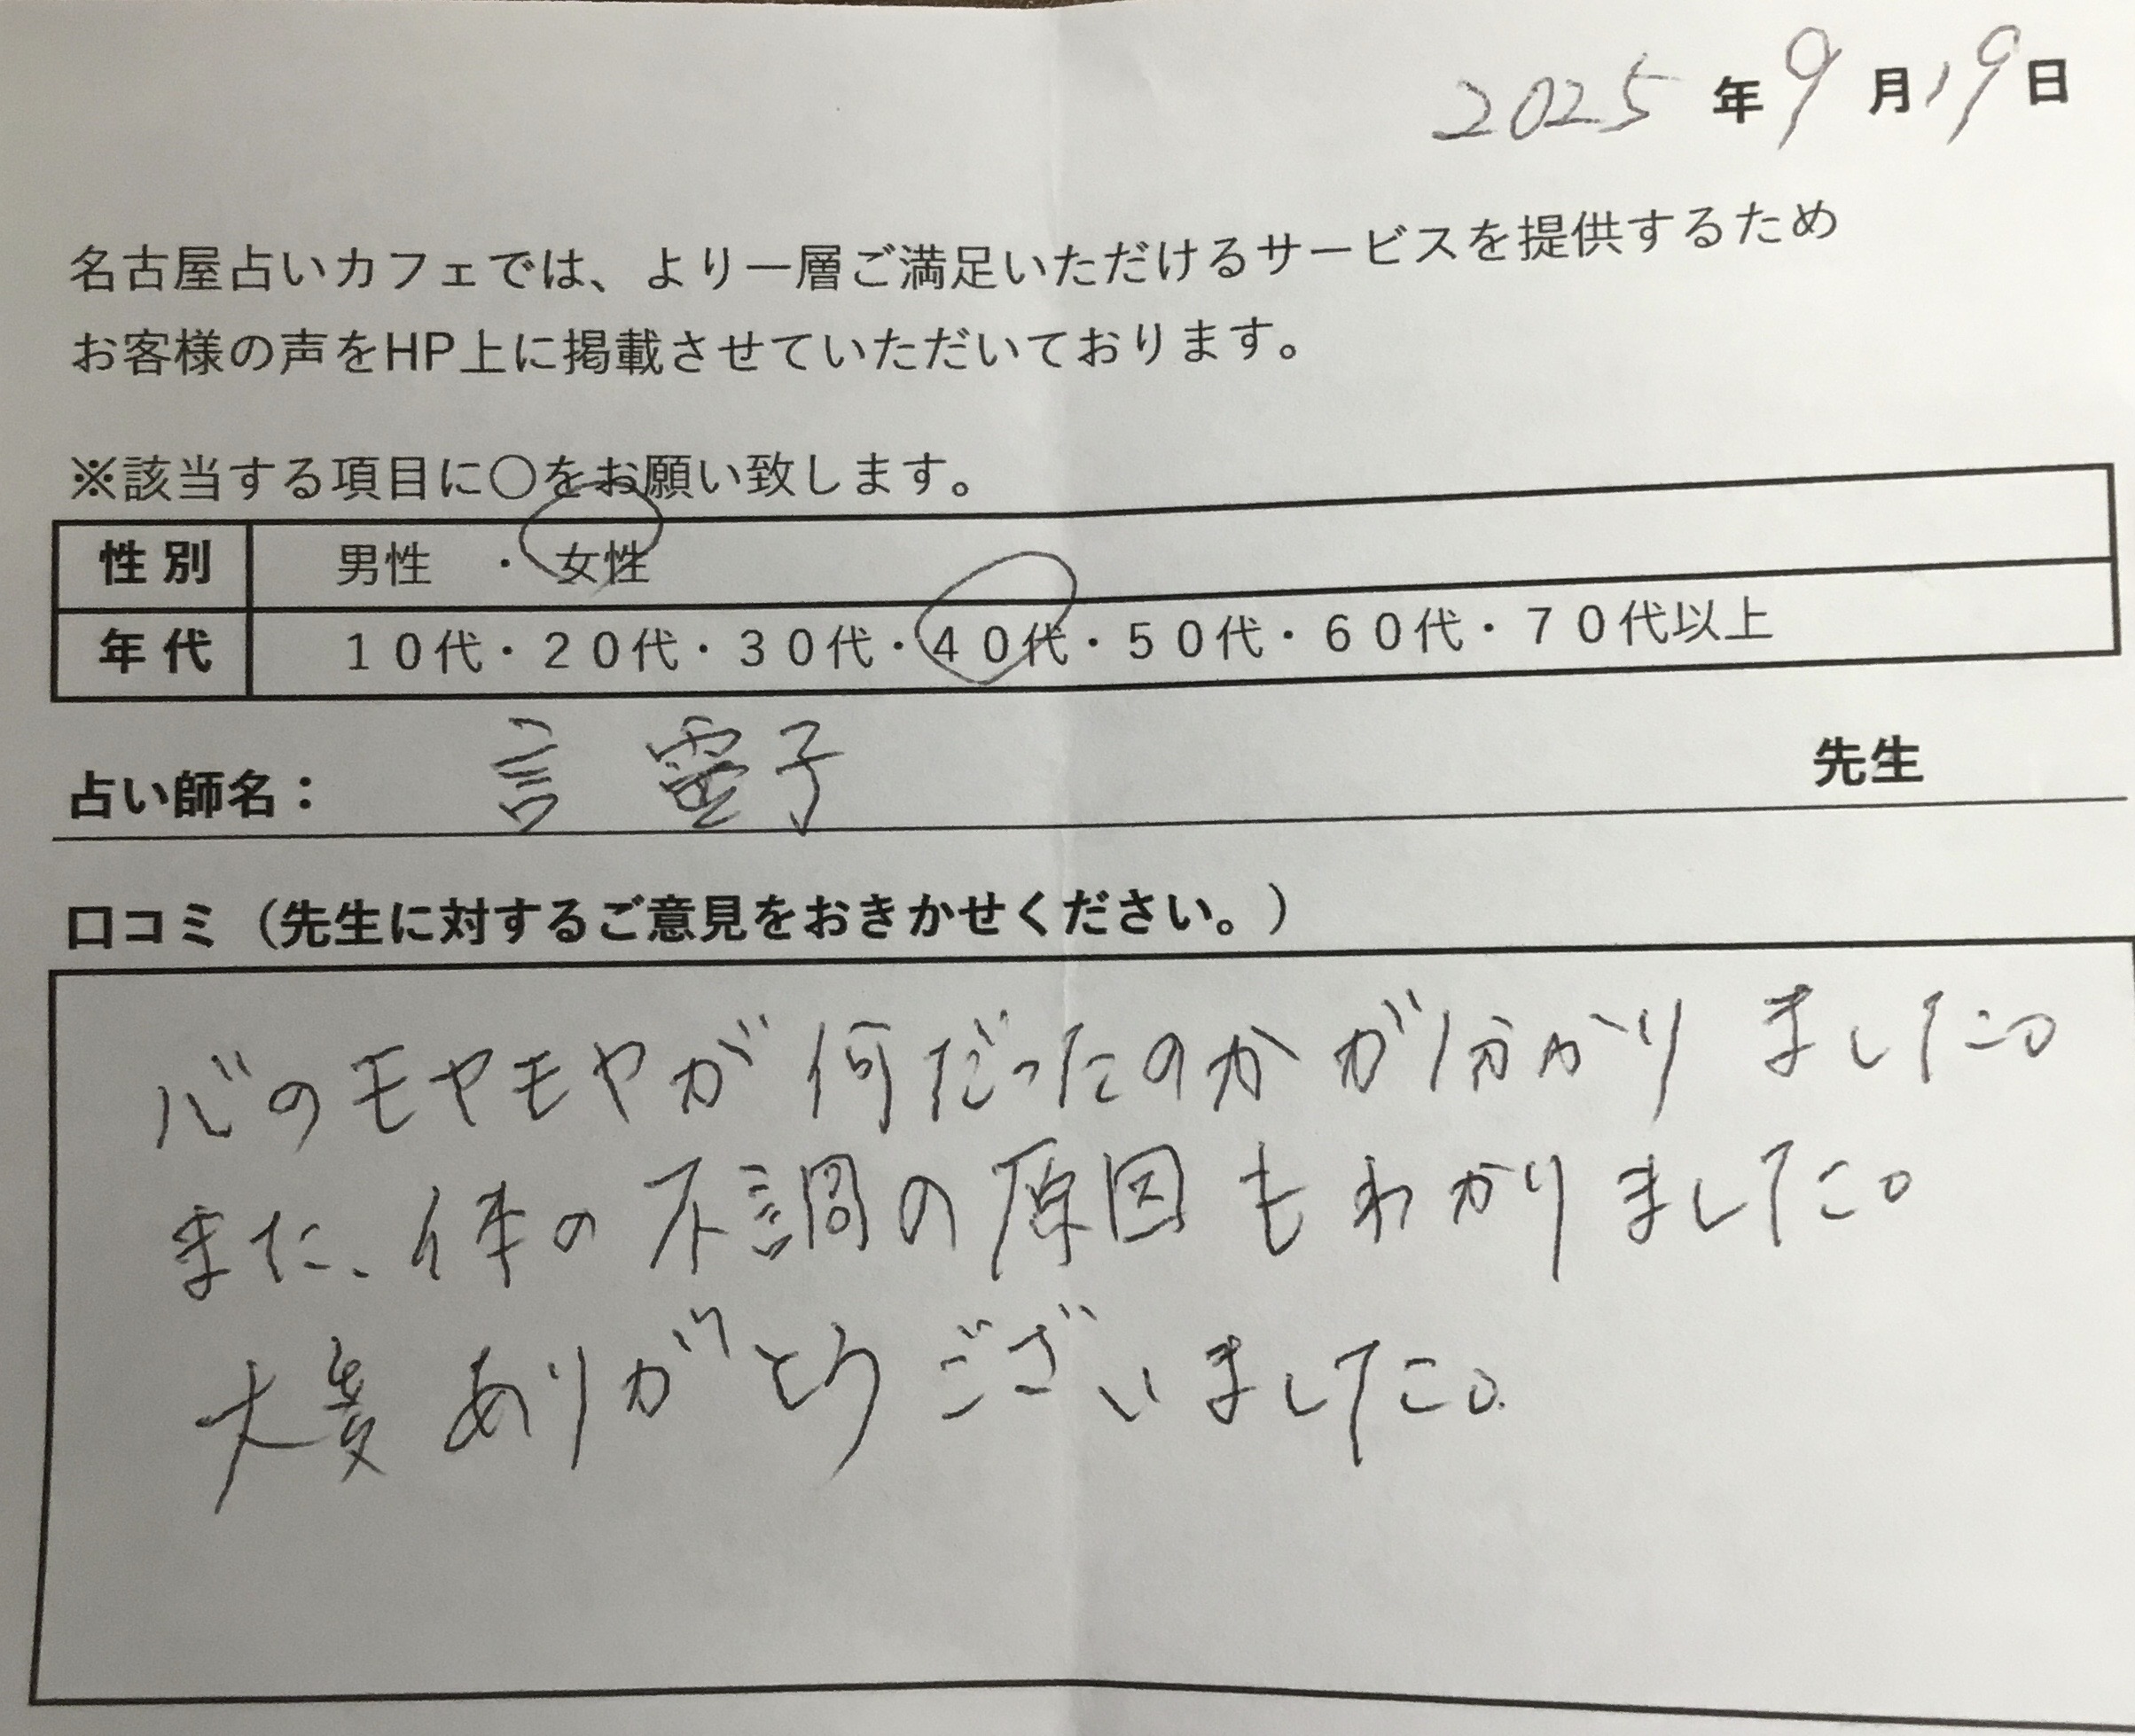 2025年9月19日
名古屋占いカフェでは、より一層ご満足いただけるサービスを提供するため
お客様の声をHP上に掲載させていただいております。
※該当する項目に〇をお願い致します。
性別 男性 ・ 女性
年代 10代・20代・30代・40代・50代・60代・70代以上
占い師名： 言 霊子 先生
口コミ（先生に対するご意見をおきかせください。）
心のモヤモヤが何だったのかが分かりました。
また、体の不調の原因もわかりました。
大変ありがとうございました。